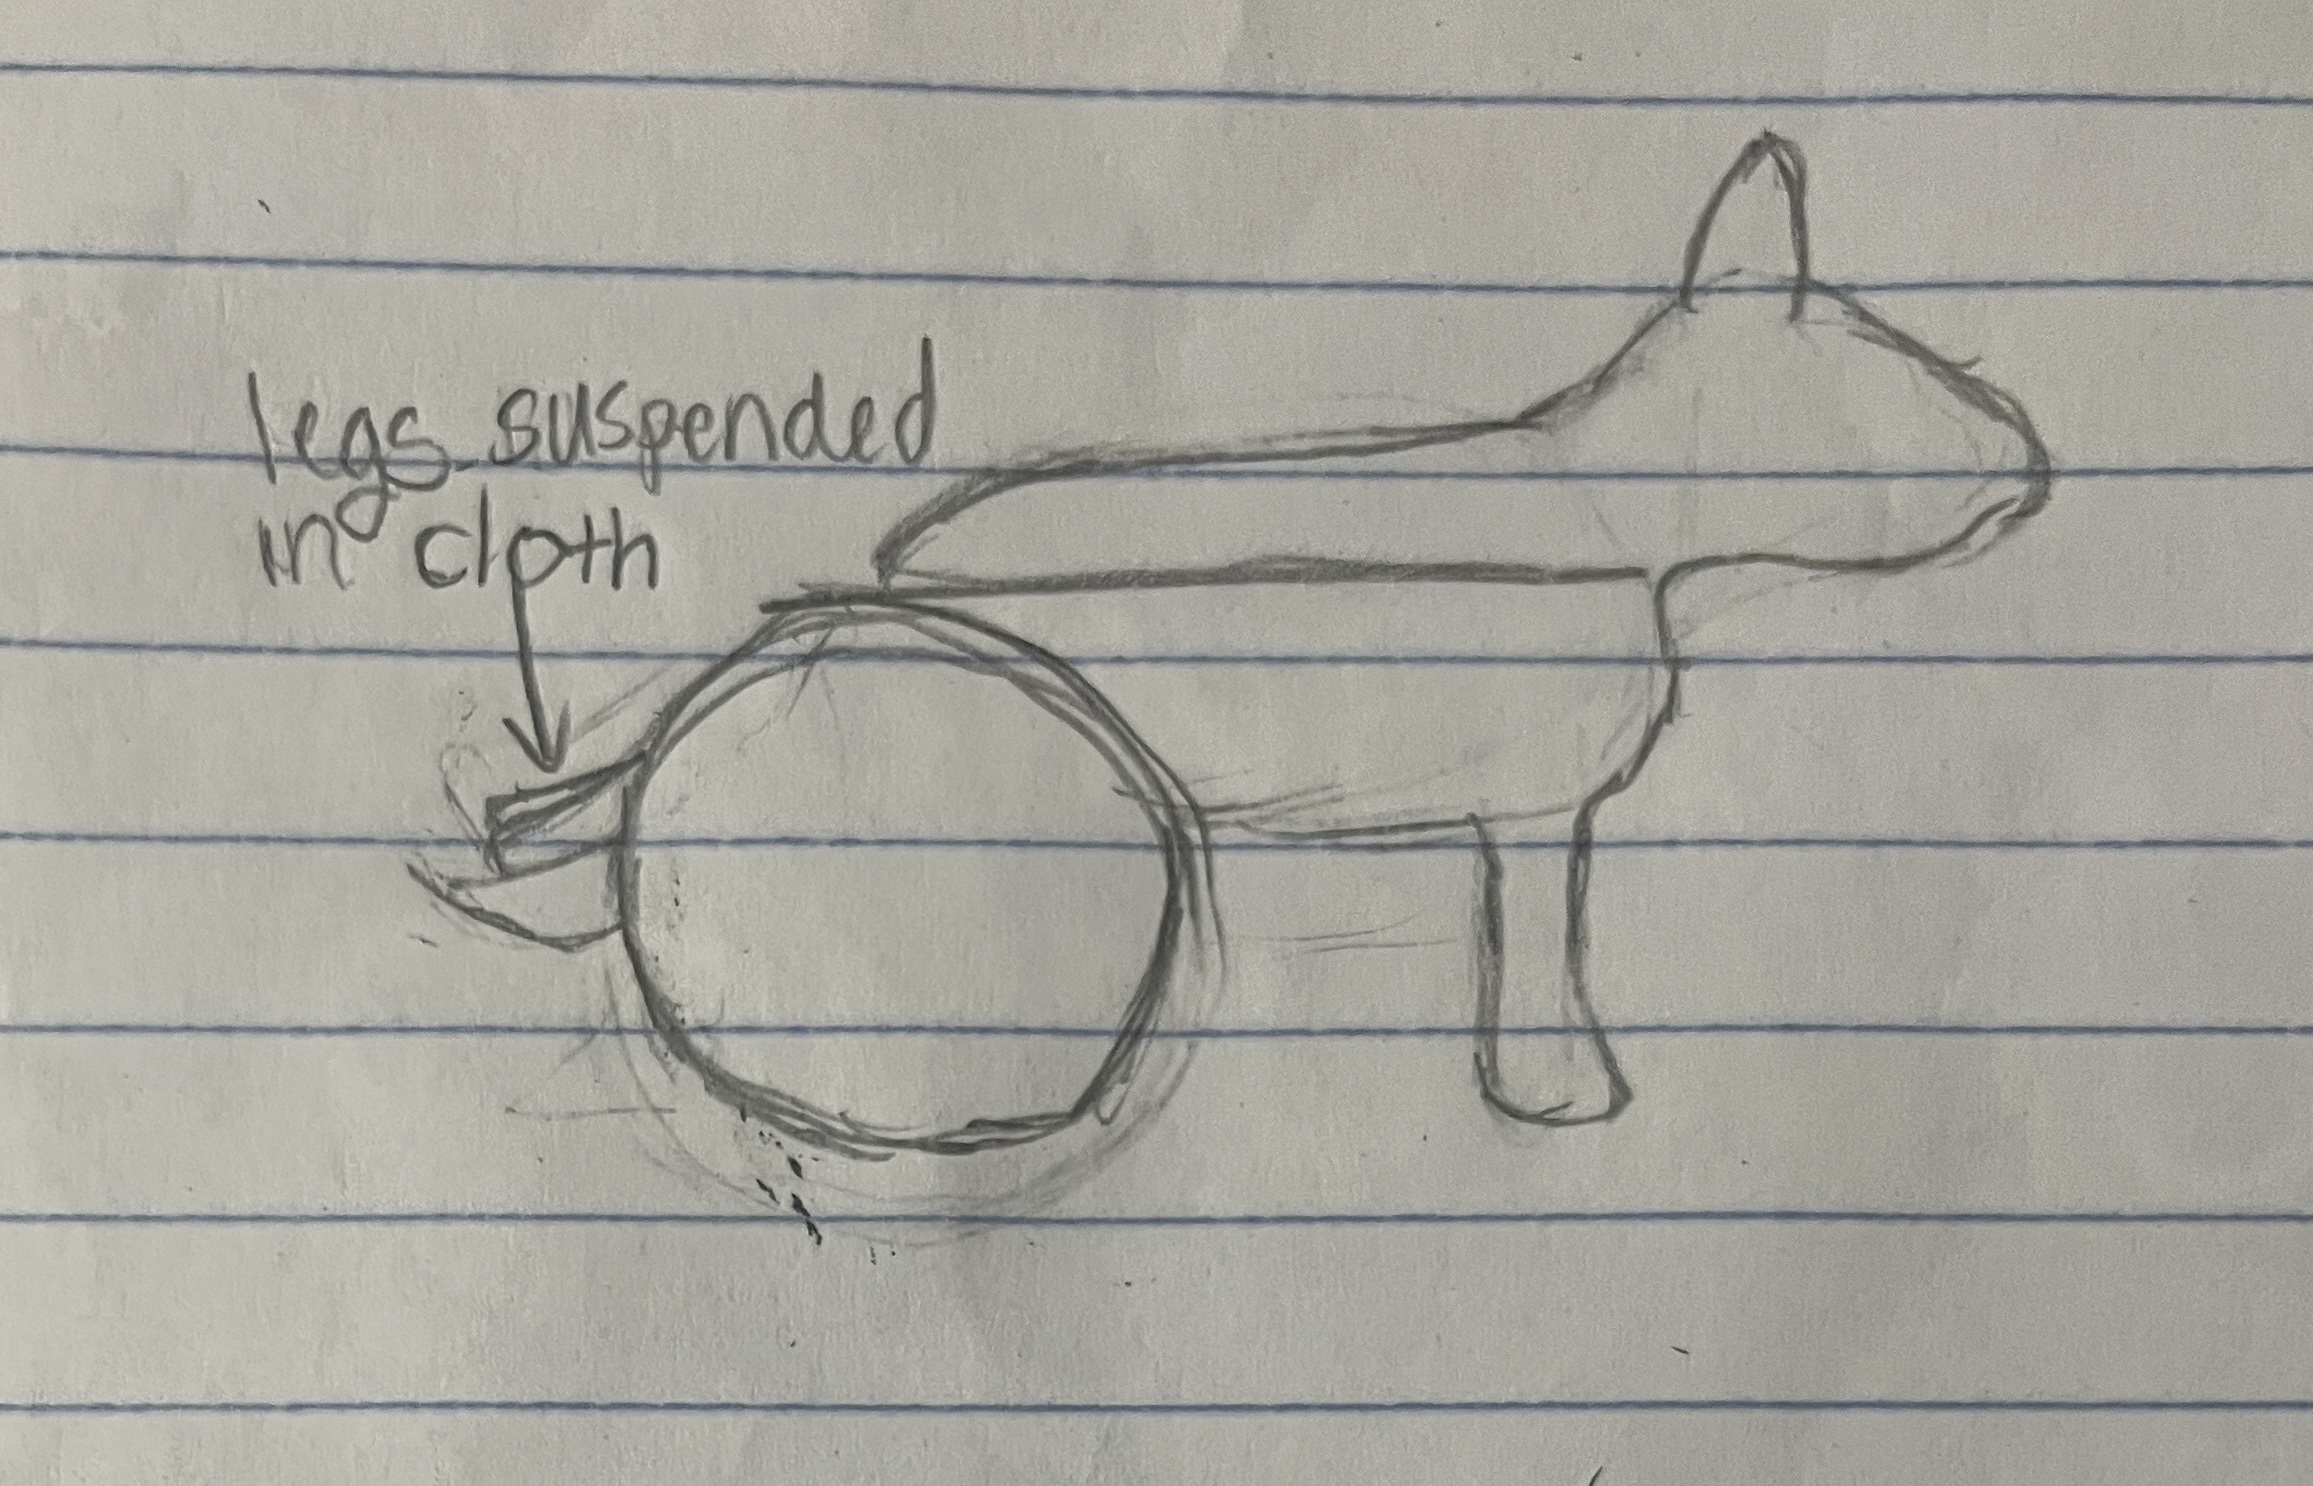 legs suspended
in cloth